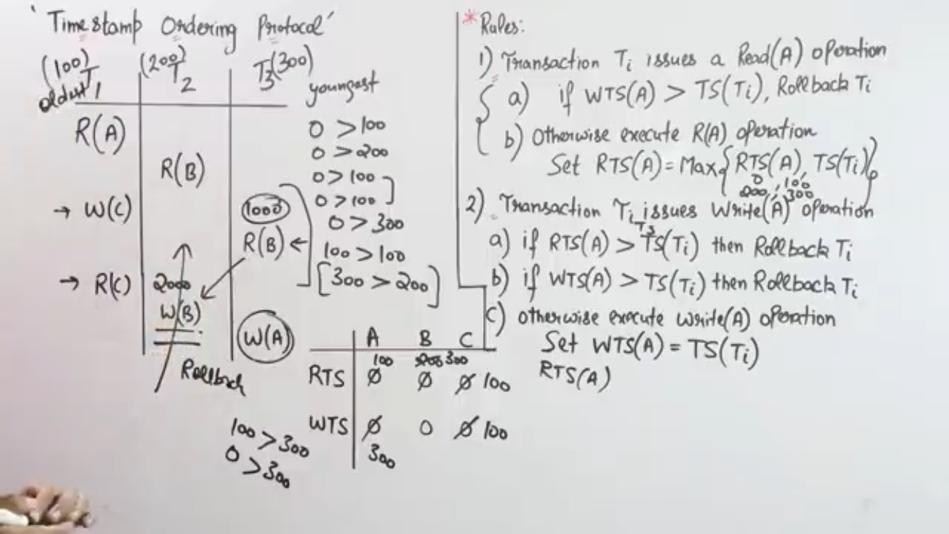 'Timestamp Ordering Protocol'
(100) (200) (300)
oldest T1 T2 T3 youngest
R(A)
R(B)
→ W(C)
1000
R(B) ←
→ R(C)
2000
W(B)
W(A)
Rollback
0 > 100
0 > 200
0 > 100
0 > 100
0 > 300
100 > 100
[300 > 200]
100 > 300
0 > 300
A B C
100 200 300
RTS 0 0 0 100
WTS 0 0 0 100
300
* Rules:
1) Transaction Ti issues a Read(A) operation
a) if WTS(A) > TS(Ti), Rollback Ti
b) Otherwise execute R(A) operation
Set RTS(A) = Max{RTS(A), TS(Ti)}
0, 100
200, 300
2) Transaction Ti issues Write(A) operation
T3
a) if RTS(A) > TS(Ti) then Rollback Ti
b) if WTS(A) > TS(Ti) then Rollback Ti
c) otherwise execute Write(A) operation
Set WTS(A) = TS(Ti)
RTS(A)